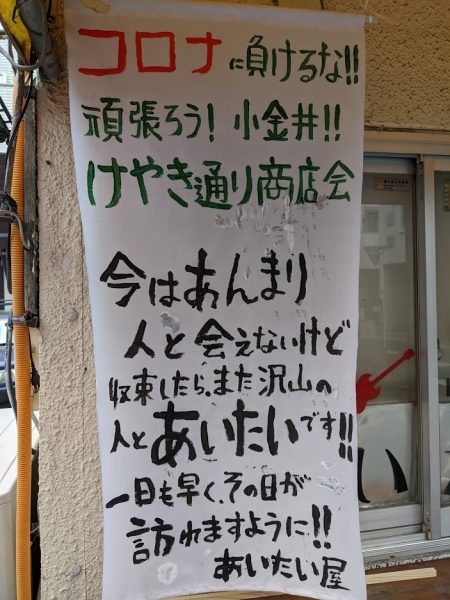 コロナに負けるな!!
頑張ろう! 小金井!!
けやき通り商店会
今はあんまり
人と会えないけど
収束したら、また沢山の
人とあいたいです!!
一日も早く、その日が
訪れますように!!
あいたい屋
い